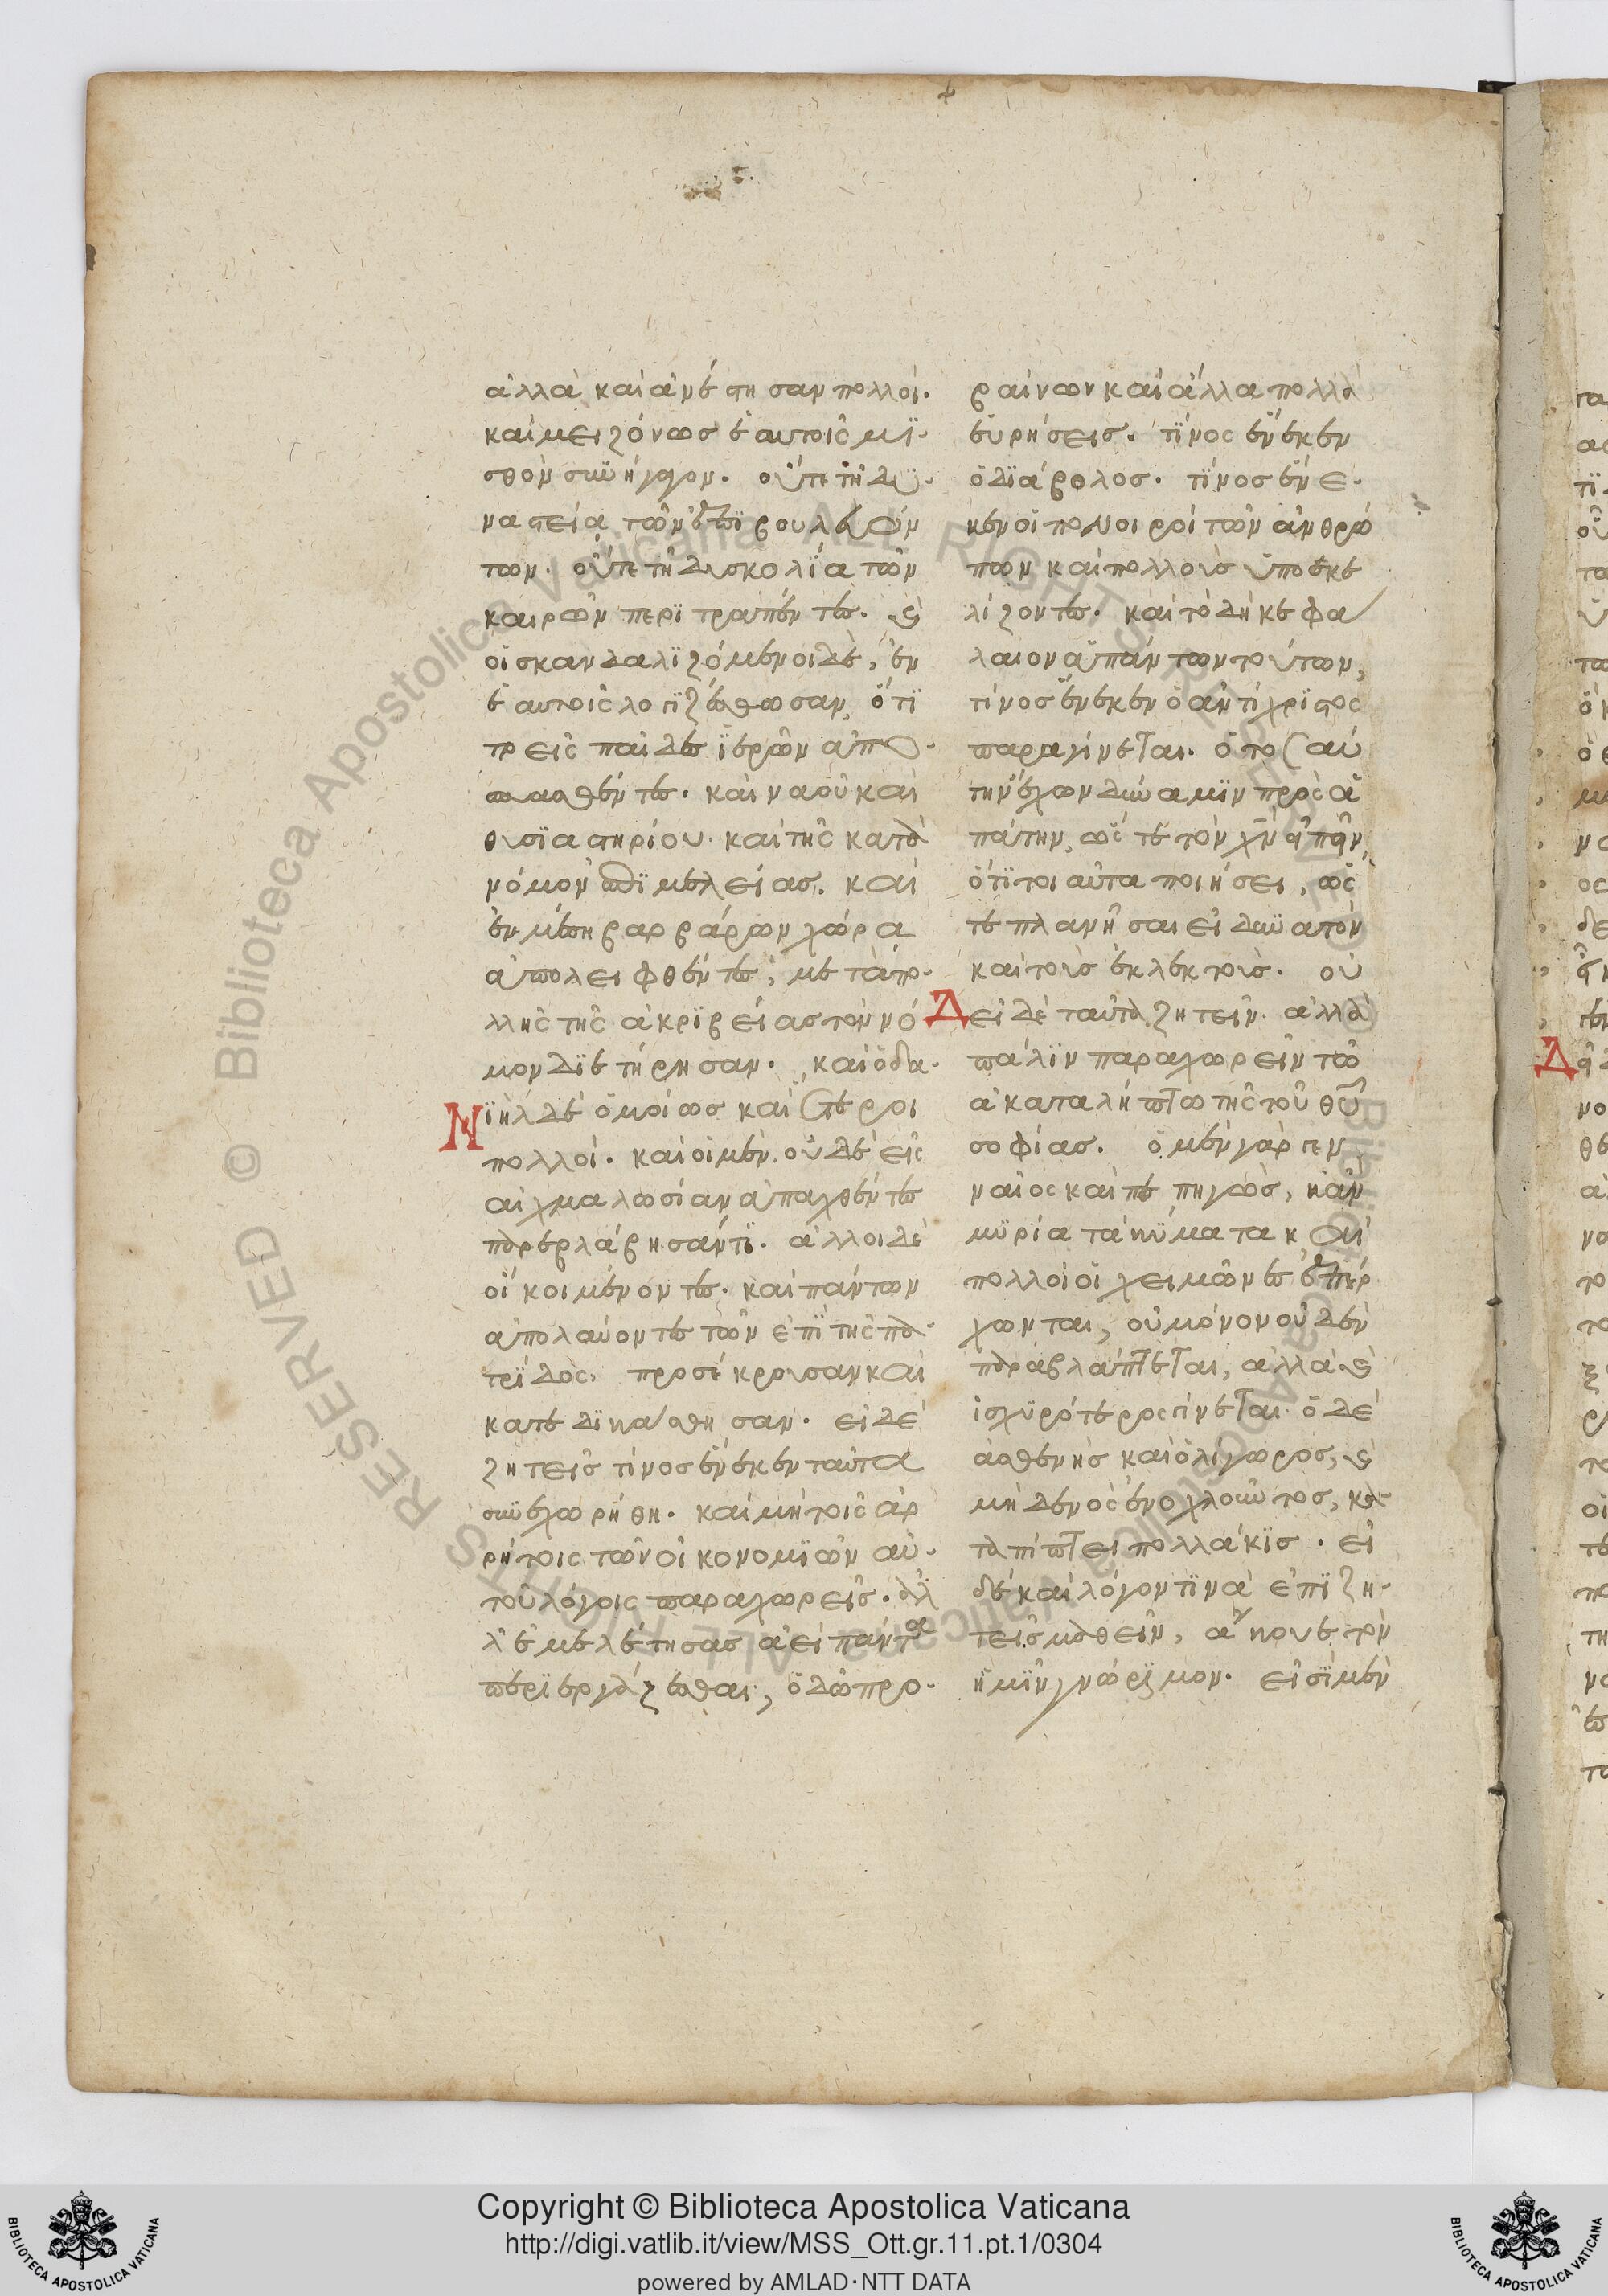 ἀλλὰ καὶ ἀνέστησαν πολλοί.
καὶ μειζόνως ἑαυτοῖς μϊ
σθὸν συνήγαγον. οὔτε τῆ δυ
ναστεία τῶν ἐπϊβουλευόν
των. οὔτε τῆ δυσκολΐα τῶν
καιρῶν περϊτραπέντες. καὶ
οἱ σκανδαλϊζόμενοι δὲ, ἐν
ἑαυτοῖς λογϊζέσθωσαν, ὅτϊ
τρεῖς παῖδες ἱερῶν ἀπο
σπασθέντες. καὶ ναοῦ καὶ
θυσϊαστηρίου. καὶ τῆς κατὰ
νόμον ἐπϊμελείας. καὶ
ἐν μέση βαρβάρων χώρα
ἀπολειφθέντες, μετὰ πο
λλῆς τῆς ἀκρϊβείας τὸν νό
μον δϊετήρησαν. καὶ ὁ δα
Νϊὴλ δὲ ὁμοίως καὶ ἕτεροι
πολλοί. καὶ οἱ μὲν οὐδὲ εἰς
αἰχμαλωσίαν ἀπαχθέντες
παρεβλάβησάν τϊ. ἄλλοι δὲ
οἴκοι μένοντες. καὶ πάντων
ἀπολαύοντες τῶν ἐπϊ τῆς πα
τρΐδος, προσέκρουσαν καὶ
κατεδϊκάσθησαν. εἰ δὲ
ζητεῖς τίνος ἕνεκεν ταῦτα
συνεχωρήθη. καὶ μὴ τοῖς ἀρ
ρήτοις τῶν οἰκονομϊῶν αὐ
τοῦ λόγοις παραχωρεῖς. ἀλ
λ' ἐμελέτησας ἀεὶ πάντα
περϊεργάζεσθαι, ὁδῶ προ
βαίνων καὶ ἄλλα πολλὰ
εὑρήσεις. τΐνος ἕνεκεν
ὁ δϊάβολος. τΐνος ἕνε
κεν οἱ πονηροὶ τῶν ἀνθρώ
πων καὶ πολλοὺς ὑποσκε
λίζοντες. καὶ τὸ δὴ κεφα
λαιον ἁπάντων τούτων,
τίνος ἕνεκεν ὁ ἀντίχρϊστος
παραγίνεται. ὁ τοσαύ
την ἔχων δύναμϊν πρὸς ἀ
πάτην, ὥς τε τὸν χν εἰπεῖν,
ὅτϊ τοιαῦτα ποιήσει, ὥς
τε πλανῆσαι εἰ δυνατὸν
καὶ τοὺς ἐκλεκτούς. οὐ
Δεῖ δὲ ταῦτα ζητεῖν. ἀλλὰ
πάλϊν παραχωρεῖν τῶ
ἀκαταλήπτω τῆς τοῦ θυ
σοφίας. ὁ μὲν γὰρ γεν
ναῖος καὶ πεπηγὼς, κἂν
μϋρία τὰ κϋματα κἂν
πολλοὶ οἱ χειμῶνες ἐπέρ
χωνται, οὐ μόνον οὐδὲν
παραβλάπτεται, ἀλλὰ καὶ
ἰσχϋρότερος γίνεται. ὁ δὲ
ἀσθενὴς καὶ ὀλίγωρος, καὶ
μηδενὸς ἐνοχλοῦντος, κα
ταπίπτει πολλάκϊς. εἰ
δὲ καὶ λόγον τϊνὰ ἐπϊζη
τεῖς μαθεῖν, ἄκουε τὸν
ἡμῖν γνώρϊμον. εἰσὶ μὲν
Copyright © Biblioteca Apostolica Vaticana
http://digi.vatlib.it/view/MSS_Ott.gr.11.pt.1/0304
powered by AMLAD·NTT DATA